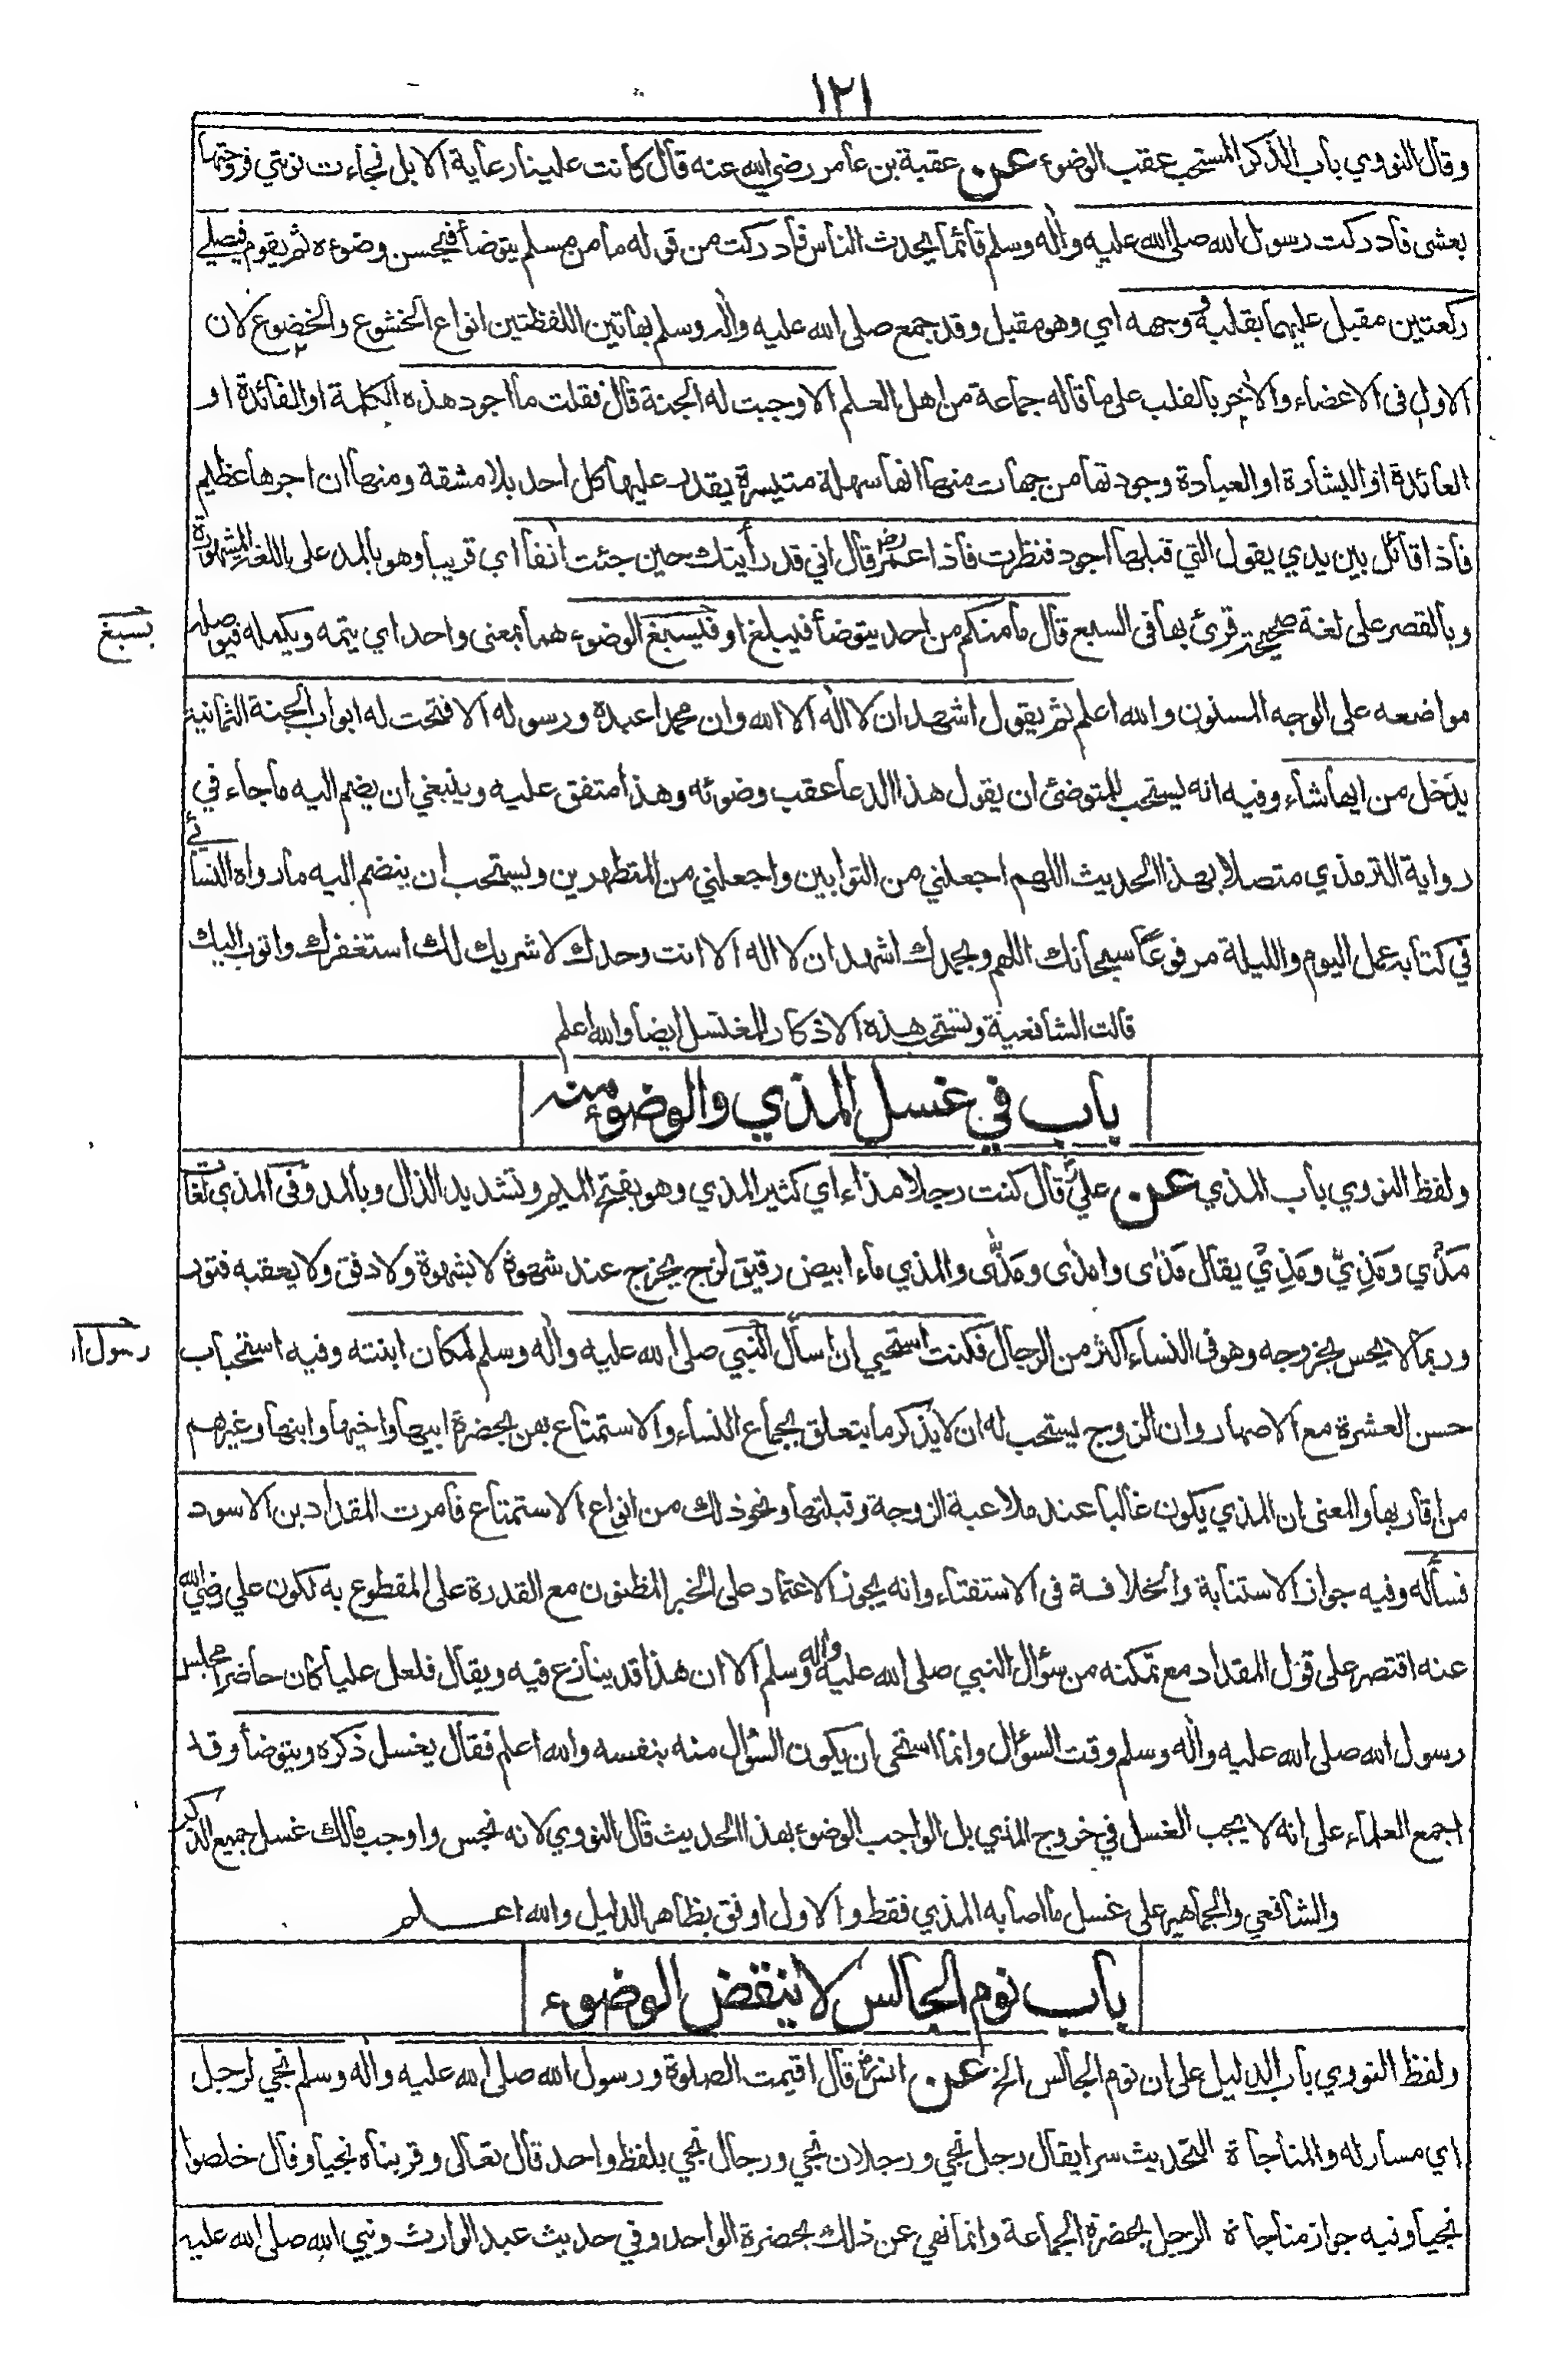 ١٢١
وقال النووي باب الذكر المستحب عقب الوضوء عن عقبة بن عامر رضي الله عنه قال كانت علينا رعاية الابل فجاءت نوبتي فروحتها
بعشى فادركت رسول الله صلى الله عليه واٰله وسلم قائما يحدث الناس فادركت من قوله ما من مسلم يتوضأ فيحسن وضوءه ثم يقوم فيصلي
ركعتين مقبل عليهما بقلبه ووجهه اي وهو مقبل وقد جمع صلى الله عليه واٰله وسلم بهاتين اللفظتين انواع الخشوع والخضوع لان
الاول في الاعضاء والاٰخر بالقلب على ما قاله جماعة من اهل العلم الا وجبت له الجنة قال فقلت ما اجود هذه الكلمة او الفائدة او
العائدة او البشارة او العبادة وجودتها من جهات منها انها سهلة متيسرة يقدر عليها كل احد بلا مشقة ومنها ان اجرها عظيم
فاذا قائل بين يدي يقول التي قبلها اجود فنظرت فاذا عمر رض قال اني قد رأيتك حين جئت اٰنفا اي قريبا وهو بالمد على اللغة المشهورة
وبالقصر على لغة صحيحة قرئ بها في السبع قال ما منكم من احد يتوضأ فيبلغ او فيسبغ الوضوء هما بمعنى واحد اي يتمه ويكمله فيوصله
يسبغ
مواضعه على الوجه المسنون والله اعلم ثم يقول اشهد ان لا الٰه الا الله وان محمدا عبده ورسوله الا فتحت له ابواب الجنة الثمانية
يدخل من ايها شاء وفيه انه يستحب للمتوضئ ان يقول هذا الدعا عقب وضوئه وهذا متفق عليه وينبغي ان يضم اليه ما جاء في
رواية الترمذي متصلا بهذا الحديث اللهم اجعلني من التوابين واجعلني من المتطهرين ويستحب ان ينضم اليه ما رواه النسائي
في كتابه عمل اليوم والليلة مرفوعًا سبحانك اللهم وبحمدك اشهد ان لا اله الا انت وحدك لا شريك لك استغفرك واتوب اليك
قالت الشافعية وتستحب هذه الاذكار للمغتسل ايضا والله اعلم
باب في غسل المذي والوضوء منه
ولفظ النووي باب المذي عن علي رض قال كنت رجلا مذاء اي كثير المذي وهو بفتح الميم وتشديد الذال وبالمد وفى المذي لغات
مَذْي ومَذِيّ ومَذِيْ يقال مَذٰى وامذٰى ومَذّٰى والمذي ماء ابيض رقيق لزج يخرج عند شهوة لا بشهوة ولا دفق ولا يعقبه فتور
وربما لا يحس بخروجه وهو فى النساء اكثر من الرجال فكنت استحيي ان اسأل النبي صلى الله عليه واٰله وسلم لمكان ابنته وفيه استحباب
رسول ا
حسن العشرة مع الاصهار وان الزوج يستحب له ان لا يذكر ما يتعلق بجماع النساء والاستمتاع بهن بحضرة ابيها واخيها وابنها وغيرهم
من اقاربها والمعنى ان المذي يكون غالبا عند ملاعبة الزوجة وقبلتها ونحو ذلك من انواع الاستمتاع فامرت المقداد بن الاسود
فسأله وفيه جواز الاستنابة والخلافة فى الاستفتاء وانه يجوز الاعتماد على الخبر المظنون مع القدرة على المقطوع به لكون علي رضي الله
عنه اقتصر على قول المقداد مع تمكنه من سؤال النبي صلى الله عليه واٰله وسلم الا ان هذا قد ينازع فيه ويقال فلعل عليا كان حاضرا مجلس
رسول الله صلى الله عليه واٰله وسلم وقت السؤال وانما استحى ان يكون السؤال منه بنفسه والله اعلم فقال يغسل ذكره ويتوضأ وقد
اجمع العلماء على انه لا يجب الغسل في خروج المذي بل الواجب الوضوء بهذا الحديث قال النووي لانه نجس واوجب مالك غسل جميع الذكر
والشافعي والجماهير على غسل ما اصابه المذي فقط والاول اوفق بظاهر الدليل والله اعلم
باب نوم الجالس لا ينقض الوضوء
ولفظ النووي باب الدليل على ان نوم الجالس الخ عن انس رض قال اقيمت الصلوة ورسول الله صلى الله عليه واٰله وسلم نجي لرجل
اي مسار له والمناجاة التحديث سرا يقال رجل نجي ورجلان نجي ورجال نجي بلفظ واحد قال تعالى وقربناه نجيا وقال خلصوا
نجيا وفيه جواز مناجاة الرجل بحضرة الجماعة وانما نهي عن ذلك بحضرة الواحد وفي حديث عبد الوارث ونبي الله صلى الله عليه